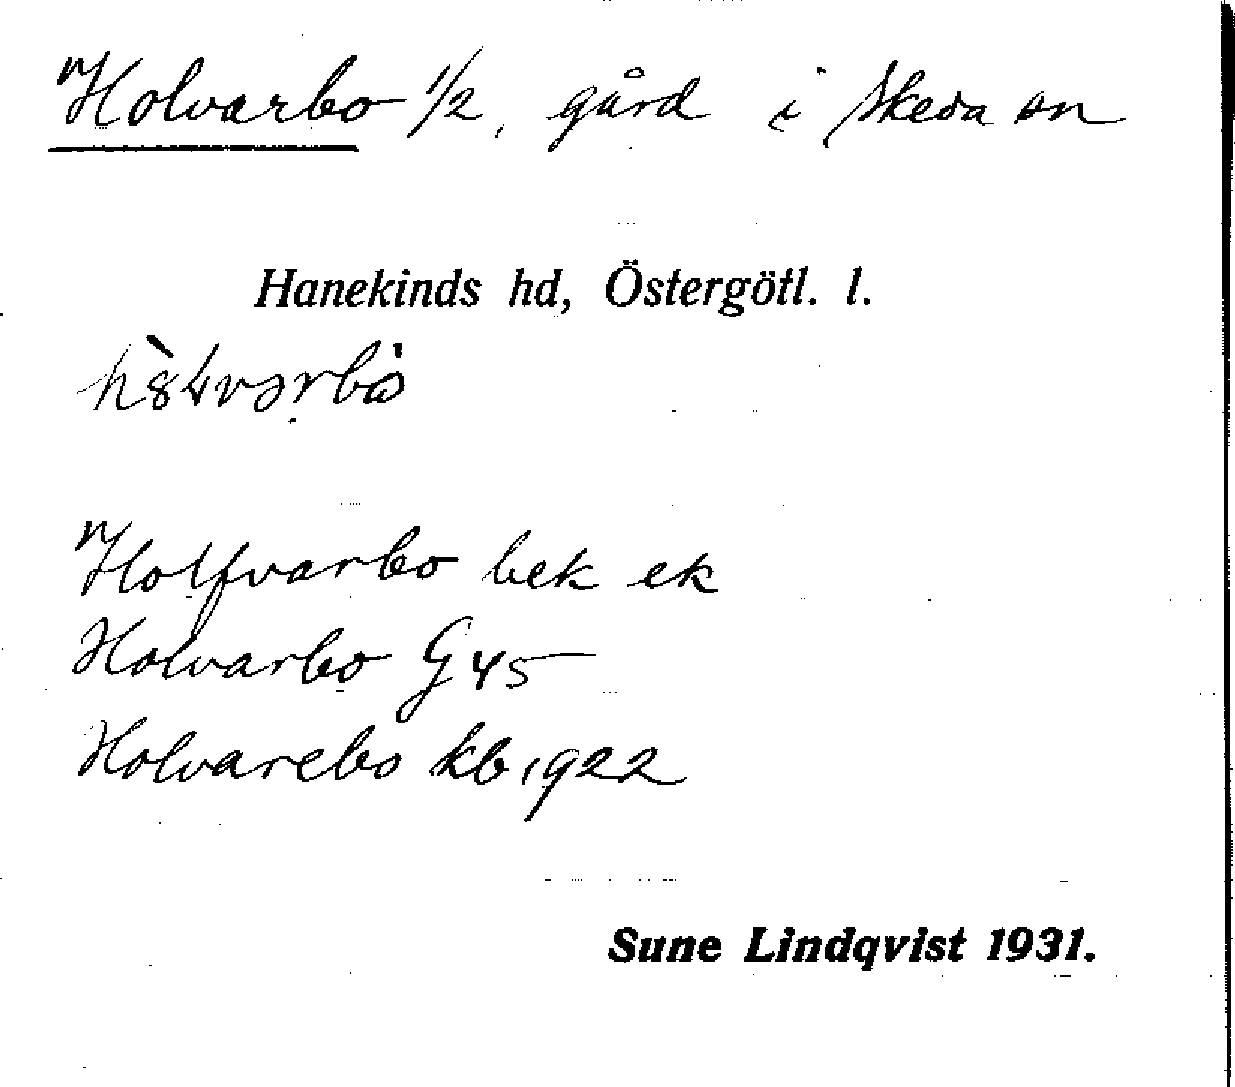 Holvarbo 1/2, gård i Skeda sn
Hanekinds hd, Östergötl. l.
Holfvarbo bek ek
Holvarbo G 45
Holvarebo kb 1922
Sune Lindqvist 1931.